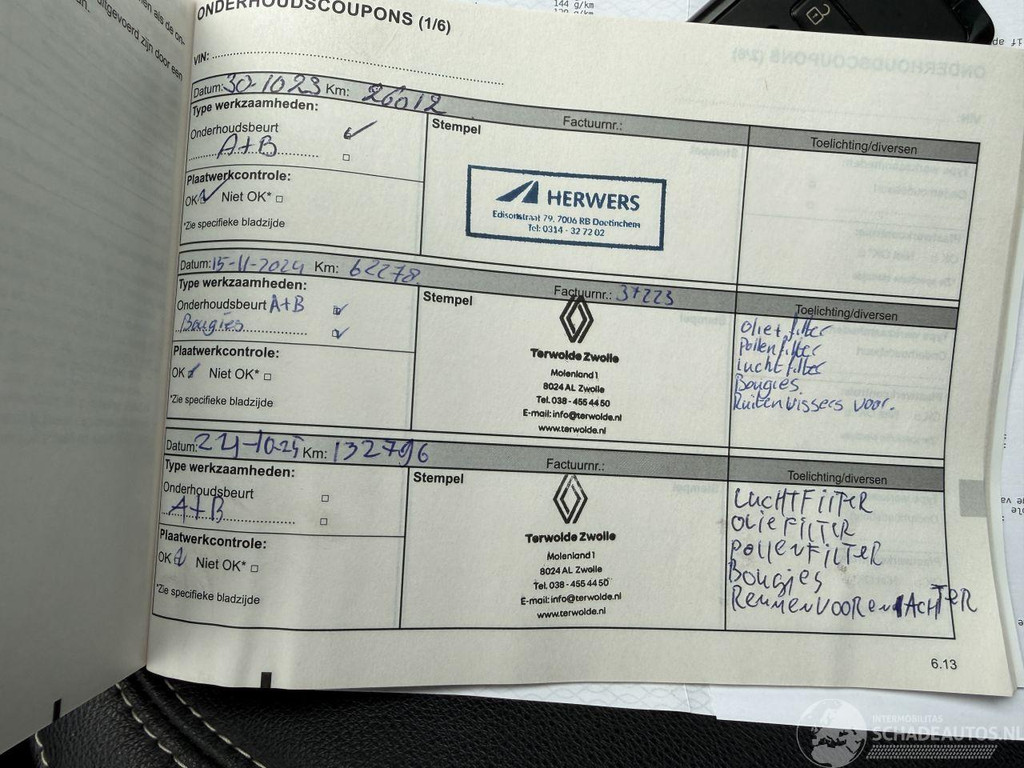 144 g/km
ONDERHOUDSCOUPONS (1/6)
VIN:
Datum: 30-10-23 Km: 26012
Type werkzaamheden:
Onderhoudsbeurt
A+B
Plaatwerkcontrole:
OK Niet OK*
*Zie specifieke bladzijde
Stempel
Factuurnr.:
HERWERS
Edisonstraat 79, 7006 RB Doetinchem
Tel: 0314 - 32 72 02
Toelichting/diversen
Datum: 15-11-2024 Km: 62278
Type werkzaamheden:
Onderhoudsbeurt A+B
Bougies
Plaatwerkcontrole:
OK Niet OK*
*Zie specifieke bladzijde
Stempel
Factuurnr.: 37223
Terwolde Zwolle
Molenland 1
8024 AL Zwolle
Tel. 038 - 455 44 50
E-mail: info@terwolde.nl
www.terwolde.nl
Toelichting/diversen
Olie+filter
Pollenfilter
Luchtfilter
Bougies.
Ruitenwissers voor.
Datum: 24-10-25 Km: 132796
Type werkzaamheden:
Onderhoudsbeurt
A+B
Plaatwerkcontrole:
OK Niet OK*
*Zie specifieke bladzijde
Stempel
Factuurnr.:
Terwolde Zwolle
Molenland 1
8024 AL Zwolle
Tel. 038 - 455 44 50
E-mail: info@terwolde.nl
www.terwolde.nl
Toelichting/diversen
LUCHTFILTER
OLIEFILTER
POLLENFILTER
Bougies
REMMEN VOOR en ACHTER
6.13
INTERMOBILITAS
SCHADEAUTOS.NL